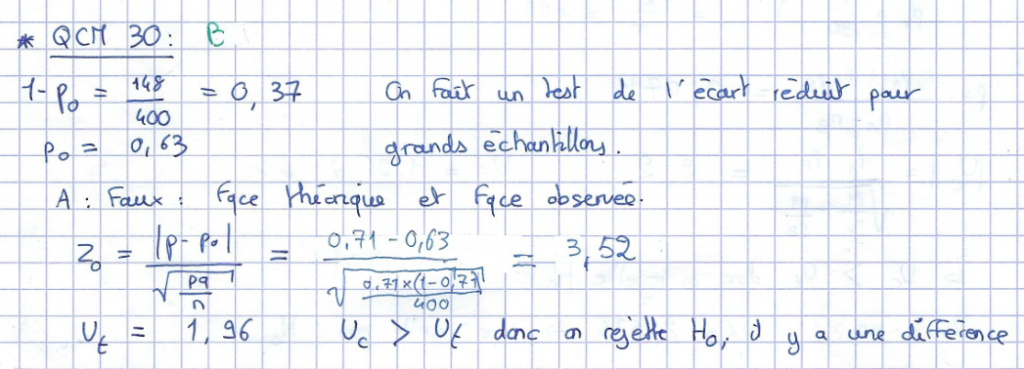 * QCM 30 : B
1-p₀ = 148/400 = 0,37 On fait un test de l'écart réduit pour
p₀ = 0,63 grands échantillons.
A : Faux : Fqce théorique et Fqce observée.
Z₀ = |p-p₀| / √(pq/n) = 0,71-0,63 / √(0,71×(1-0,71)/400) = 3,52
U_t = 1,96 U_c > U_t donc on rejette H₀, il y a une différence